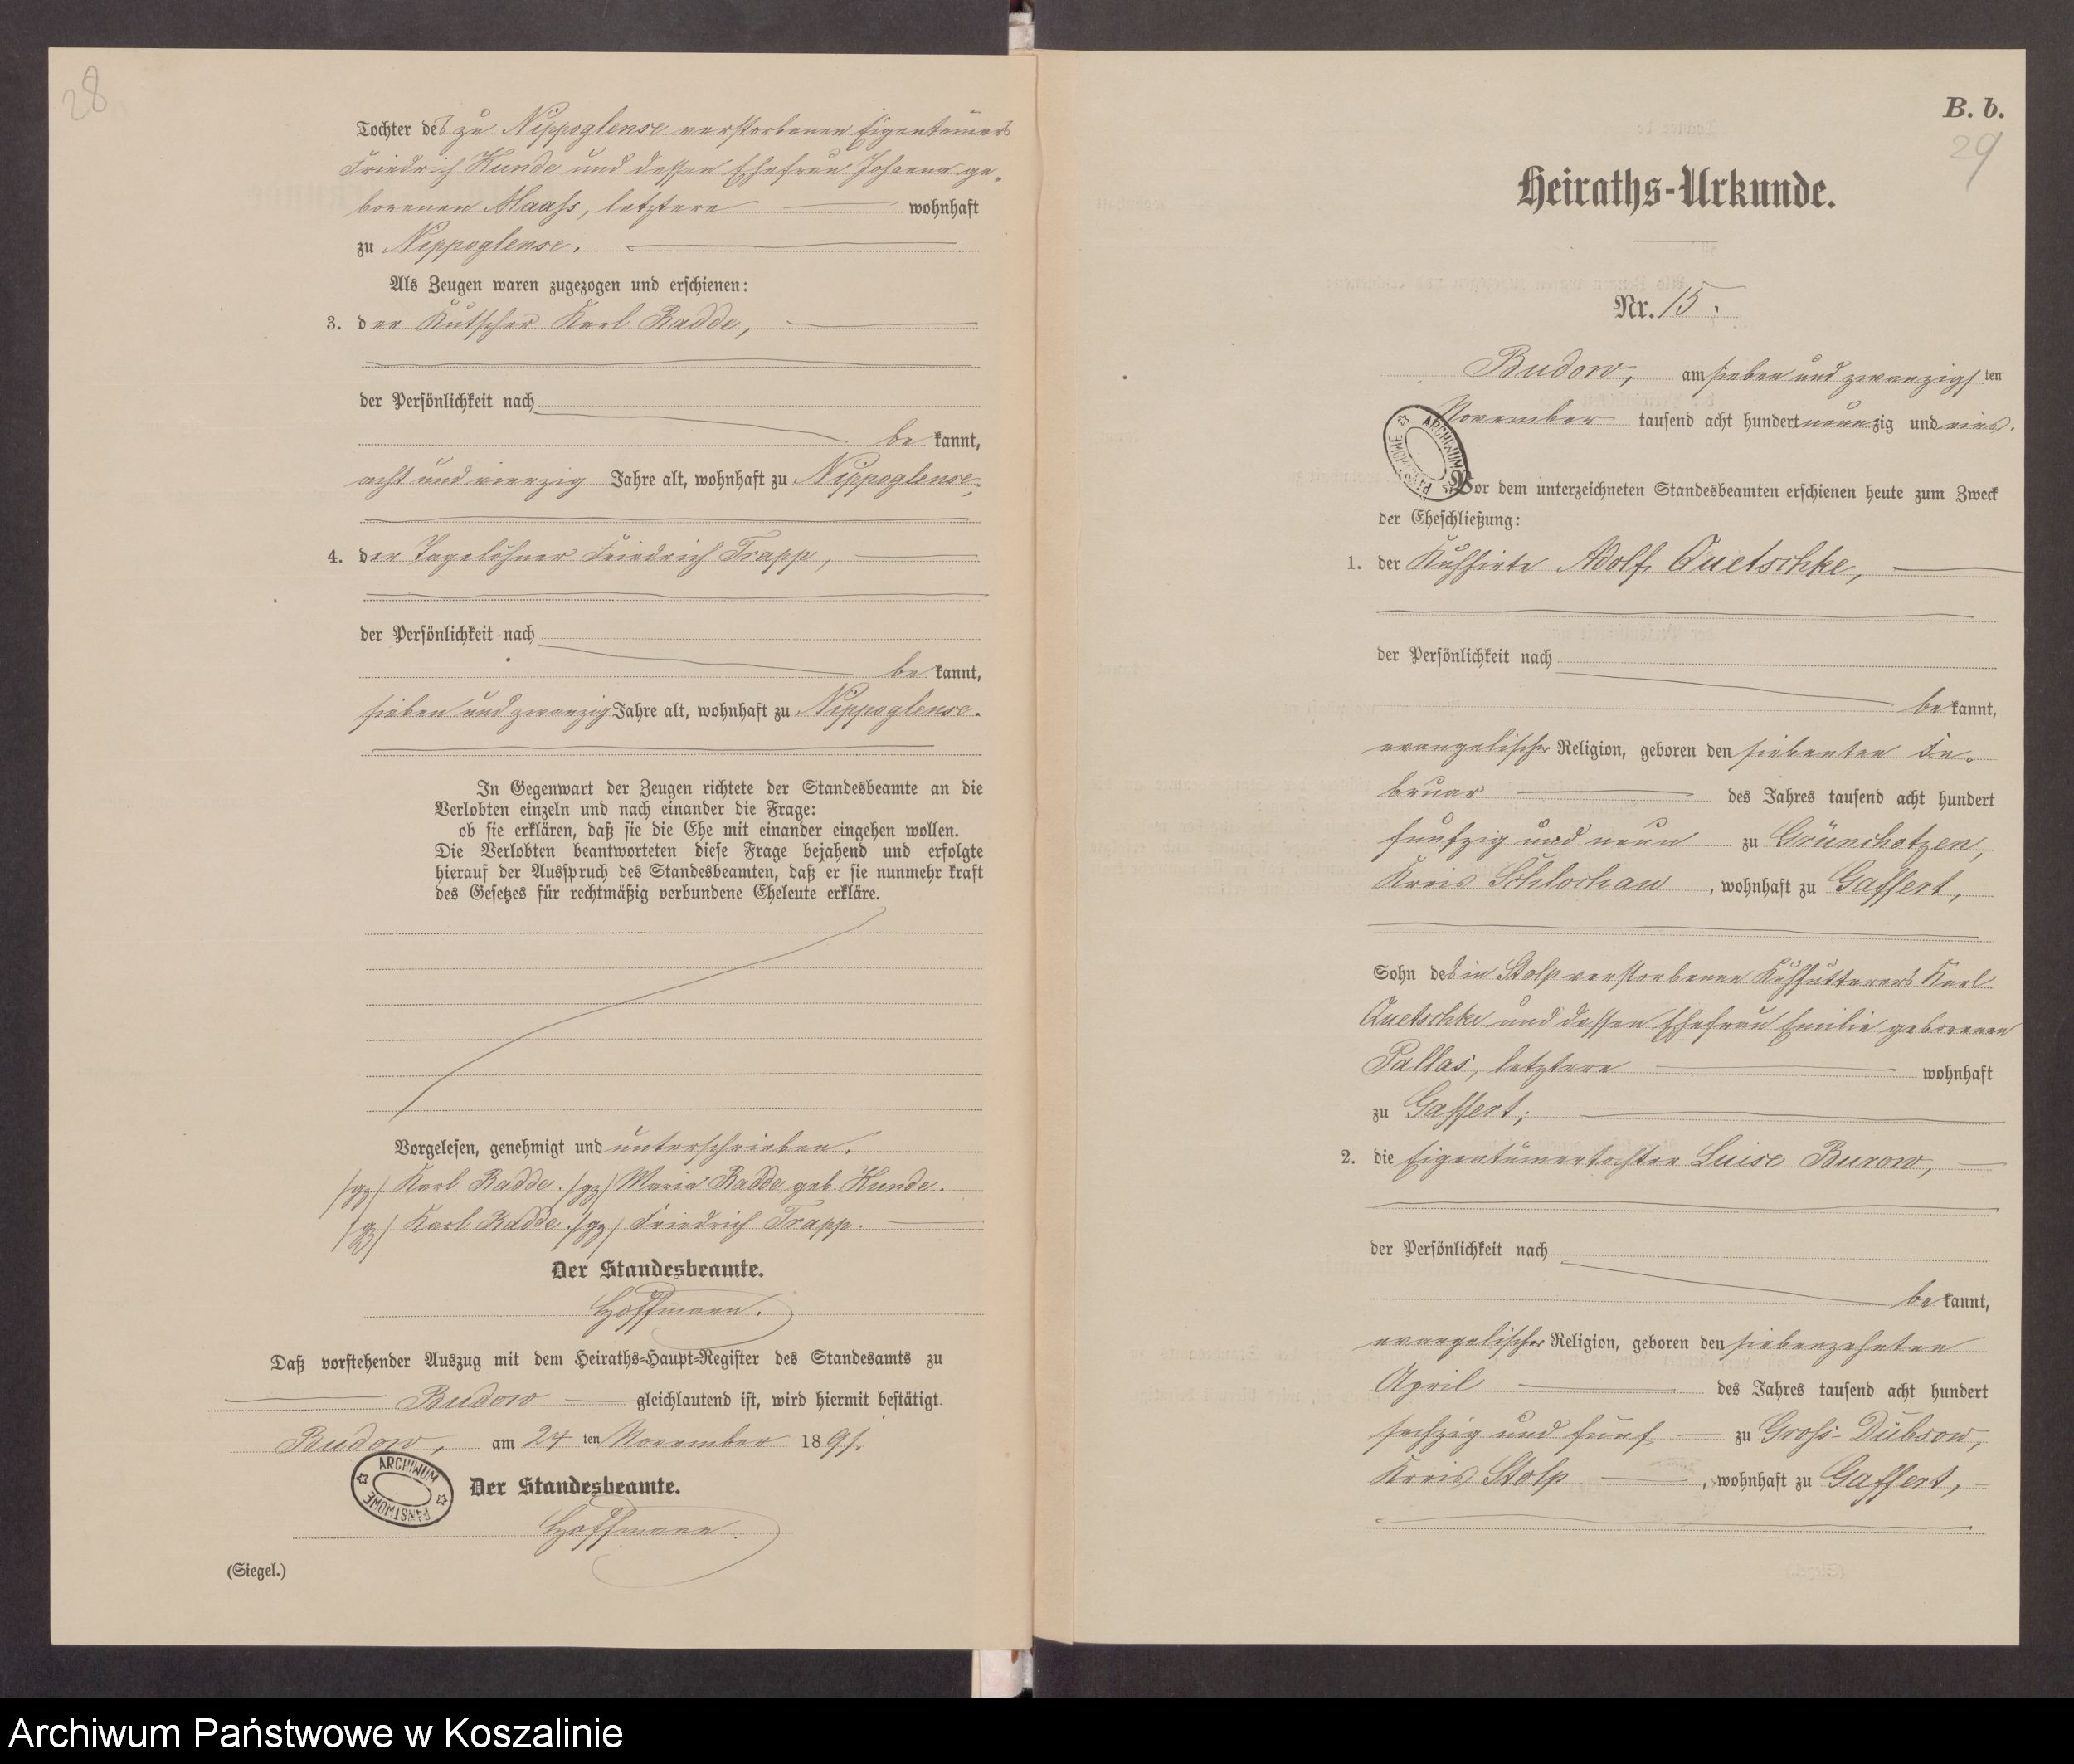 28
Tochter des zu Nippoglense verstorbenen Eigentümers
Friedrich Kunde und dessen Ehefrau Johanna ge-
borenen Maaß, letztere wohnhaft
zu Nippoglense.
Als Zeugen waren zugezogen und erschienen:
3. der Kutscher Karl Radde,
der Persönlichkeit nach
be kannt,
acht und vierzig Jahre alt, wohnhaft zu Nippoglense,
4. der Tagelöhner Friedrich Trapp,
der Persönlichkeit nach
be kannt,
sieben und zwanzig Jahre alt, wohnhaft zu Nippoglense.
In Gegenwart der Zeugen richtete der Standesbeamte an die
Verlobten einzeln und nach einander die Frage:
ob sie erklären, daß sie die Ehe mit einander eingehen wollen.
Die Verlobten beantworteten diese Frage bejahend und erfolgte
hierauf der Ausspruch des Standesbeamten, daß er sie nunmehr kraft
des Gesetzes für rechtmäßig verbundene Eheleute erkläre.
Vorgelesen, genehmigt und unterschrieben.
/gz/ Karl Radde. /gz/ Maria Radde geb. Kunde.
/gz/ Karl Radde. /gz/ Friedrich Trapp.
Der Standesbeamte.
Hoffmann.
Daß vorstehender Auszug mit dem Heiraths-Haupt-Register des Standesamts zu
Budow gleichlautend ist, wird hiermit bestätigt.
Budow, am 27 ten November 1891.
ARCHIWUM PAŃSTWOWE
Der Standesbeamte.
Hoffmann.
(Siegel.)
B. b.
29
Heiraths-Urkunde.
Nr. 15.
Budow, am sieben und zwanzigsten
November tausend acht hundert neunzig und eins.
ARCHIWUM PAŃSTWOWE
Vor dem unterzeichneten Standesbeamten erschienen heute zum Zweck
der Eheschließung:
1. der Kuhhirte Adolf Quetschke,
der Persönlichkeit nach
be kannt,
evangelischer Religion, geboren den siebenten Fe-
bruar des Jahres tausend acht hundert
fünfzig und neun zu Grünchotzen,
Kreis Schlochau, wohnhaft zu Gaffert,
Sohn des in Stolp verstorbenen Kuhfutterers Karl
Quetschke und dessen Ehefrau Emilie geborenen
Pallas, letztere wohnhaft
zu Gaffert;
2. die Eigentümertochter Luise Burow,
der Persönlichkeit nach
be kannt,
evangelischer Religion, geboren den siebenzehnten
April des Jahres tausend acht hundert
sechzig und fünf zu Groß-Dübsow,
Kreis Stolp, wohnhaft zu Gaffert,
Archiwum Państwowe w Koszalinie